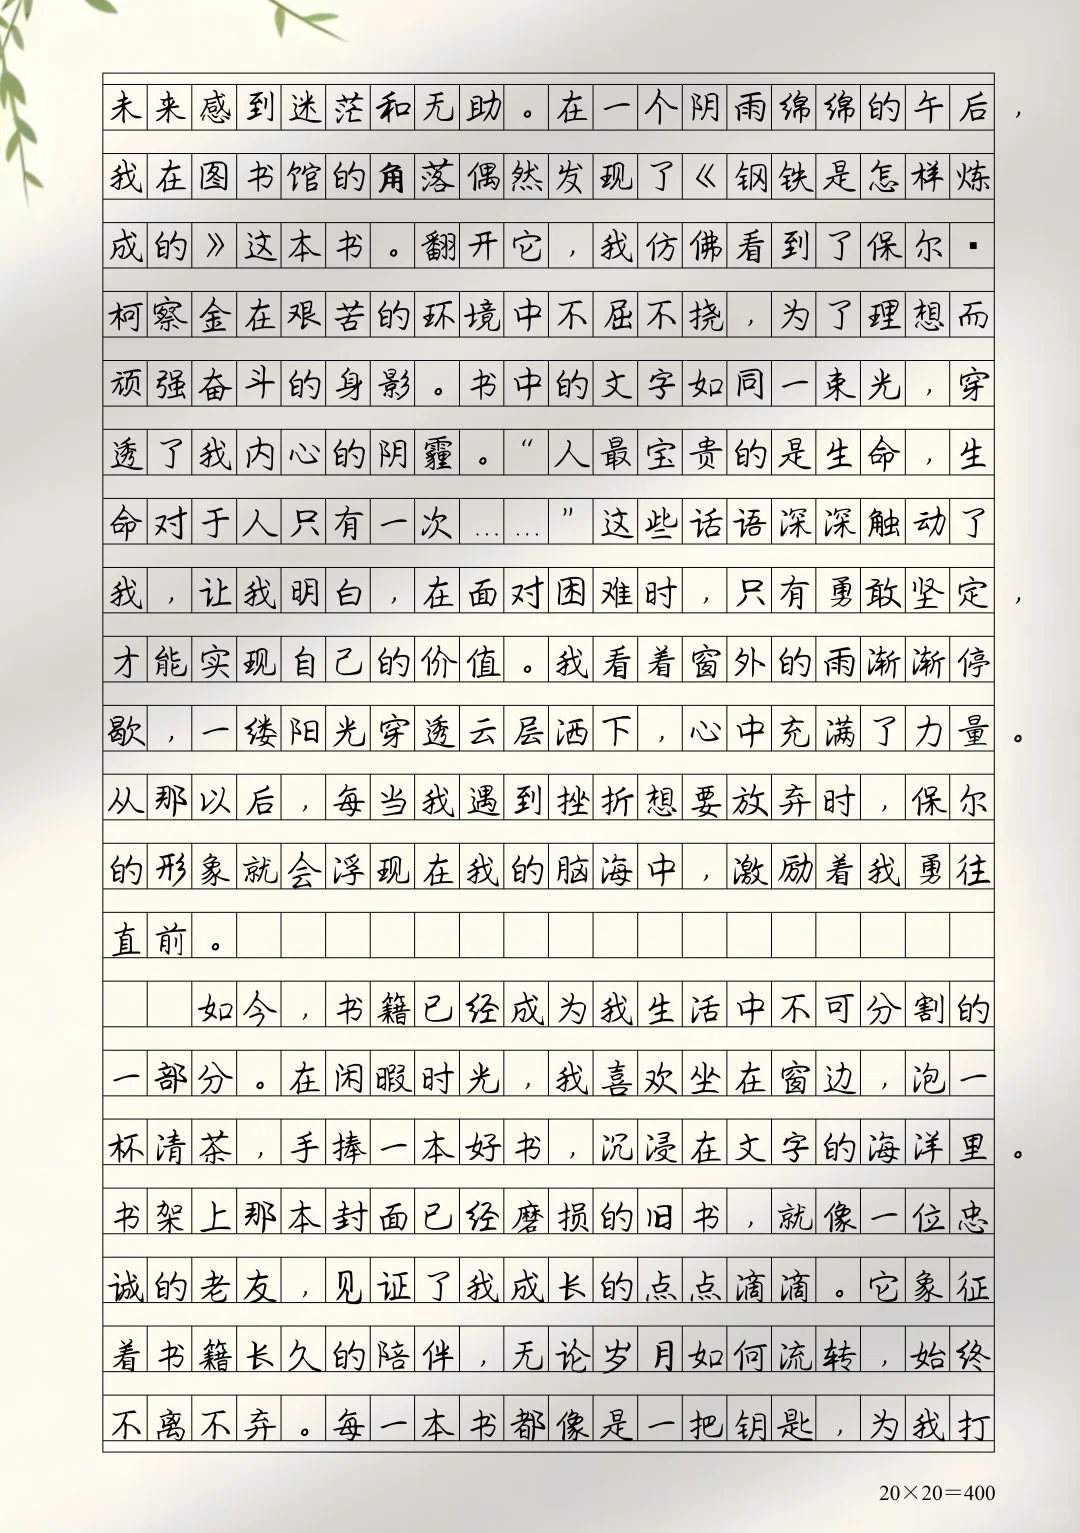 未来感到迷茫和无助。在一个阴雨绵绵的午后，
我在图书馆的角落偶然发现了《钢铁是怎样炼
成的》这本书。翻开它，我仿佛看到了保尔·
柯察金在艰苦的环境中不屈不挠，为了理想而
顽强奋斗的身影。书中的文字如同一束光，穿
透了我内心的阴霾。“人最宝贵的是生命，生
命对于人只有一次……”这些话语深深触动了
我，让我明白，在面对困难时，只有勇敢坚定，
才能实现自己的价值。我看着窗外的雨渐渐停
歇，一缕阳光穿透云层洒下，心中充满了力量。
从那以后，每当我遇到挫折想要放弃时，保尔
的形象就会浮现在我的脑海中，激励着我勇往
直前。
如今，书籍已经成为我生活中不可分割的
一部分。在闲暇时光，我喜欢坐在窗边，泡一
杯清茶，手捧一本好书，沉浸在文字的海洋里。
书架上那本封面已经磨损的旧书，就像一位忠
诚的老友，见证了我成长的点点滴滴。它象征
着书籍长久的陪伴，无论岁月如何流转，始终
不离不弃。每一本书都像是一把钥匙，为我打
20×20=400